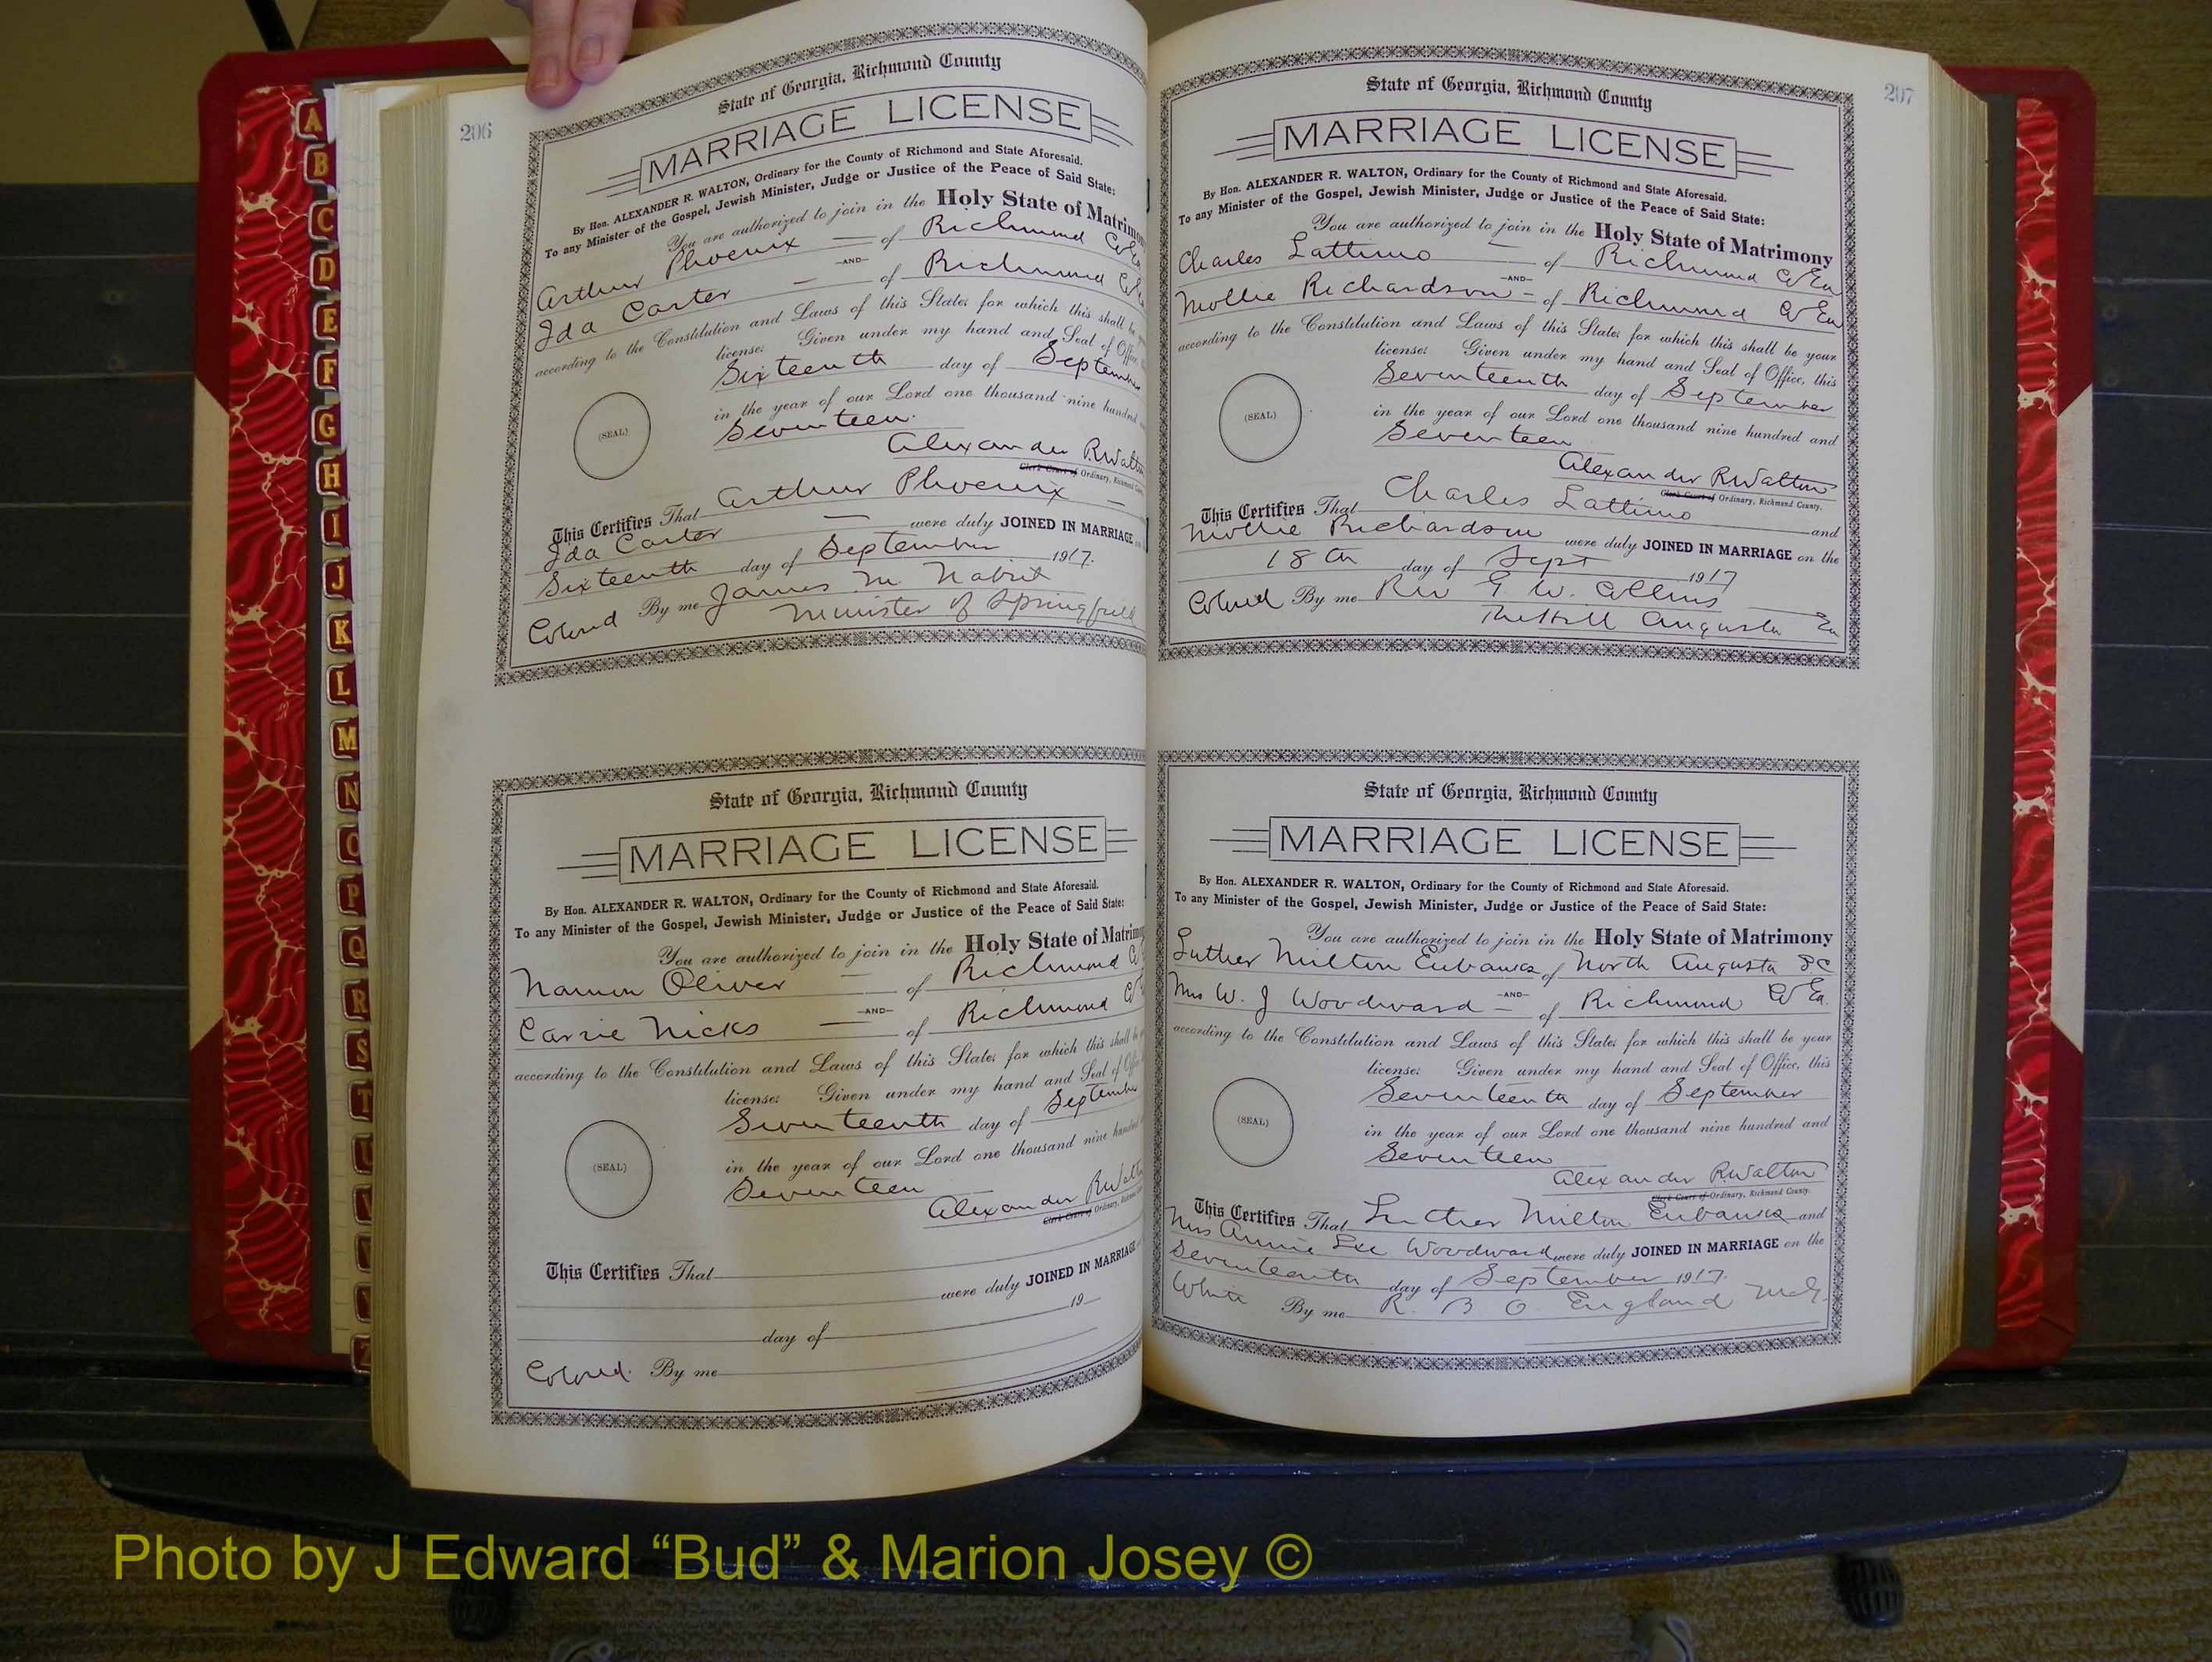 A
B
C
D
E
F
G
H
I
J
K
L
M
N
O
P
Q
R
S
T
206
State of Georgia, Richmond County
MARRIAGE LICENSE
By Hon. ALEXANDER R. WALTON, Ordinary for the County of Richmond and State Aforesaid.
To any Minister of the Gospel, Jewish Minister, Judge or Justice of the Peace of Said State:
You are authorized to join in the Holy State of Matrimo
Arthur Phoenix — of Richmond Co Ga
—AND—
Ida Carter — of Richmond Co
according to the Constitution and Laws of this State; for which this shall be
license: Given under my hand and Seal of Office
Sixteenth day of September
(SEAL)
in the year of our Lord one thousand nine hundred
Seventeen.
Alexander R Walton
Clerk Court of Ordinary, Richmond
This Certifies That Arthur Phoenix —
Ida Carter — were duly JOINED IN MARRIAGE
Sixteenth day of September 1917.
Colored By me James M Nabrit
Minister of Springfield
State of Georgia, Richmond County
MARRIAGE LICENSE
By Hon. ALEXANDER R. WALTON, Ordinary for the County of Richmond and State Aforesaid.
To any Minister of the Gospel, Jewish Minister, Judge or Justice of the Peace of Said State:
You are authorized to join in the Holy State of Matrimo
Oliver — of Richmond C
—AND—
Carrie Nicks — of Richmond Co
according to the Constitution and Laws of this State; for which this shall be
license: Given under my hand and Seal of Office
Seventeenth day of September
(SEAL)
in the year of our Lord one thousand nine hundred
Seventeen
Alexander R Walton
Clerk Court of Ordinary, Richmond
This Certifies That
were duly JOINED IN MARRIAGE
day of 19
Colored. By me
207
State of Georgia, Richmond County
MARRIAGE LICENSE
By Hon. ALEXANDER R. WALTON, Ordinary for the County of Richmond and State Aforesaid.
To any Minister of the Gospel, Jewish Minister, Judge or Justice of the Peace of Said State:
You are authorized to join in the Holy State of Matrimony
Charles Lattimo — of Richmond Co Ga
—AND—
Mollie Richardson — of Richmond Co Ga
according to the Constitution and Laws of this State; for which this shall be your
license: Given under my hand and Seal of Office, this
Seventeenth day of September
(SEAL)
in the year of our Lord one thousand nine hundred and
Seventeen
Alexander R Walton
Clerk Court of Ordinary, Richmond County.
This Certifies That Charles Lattimo
and
Mollie Richardson were duly JOINED IN MARRIAGE on the
18th day of Sept 1917
Colored By me Rev G. W. Collins
The Hill Augusta Ga
State of Georgia, Richmond County
MARRIAGE LICENSE
By Hon. ALEXANDER R. WALTON, Ordinary for the County of Richmond and State Aforesaid.
To any Minister of the Gospel, Jewish Minister, Judge or Justice of the Peace of Said State:
You are authorized to join in the Holy State of Matrimony
Luther Milton Eubanks of North Augusta SC
—AND—
Mrs W. J Woodward — of Richmond Co Ga.
according to the Constitution and Laws of this State; for which this shall be your
license: Given under my hand and Seal of Office, this
Seventeenth day of September
(SEAL)
in the year of our Lord one thousand nine hundred and
Seventeen
Alexander R Walton
Clerk Court of Ordinary, Richmond County.
This Certifies That Luther Milton Eubanks and
Mrs Annie Lee Woodward were duly JOINED IN MARRIAGE on the
Seventeenth day of September 1917.
White By me R. B O England
Photo by J Edward “Bud” & Marion Josey ©